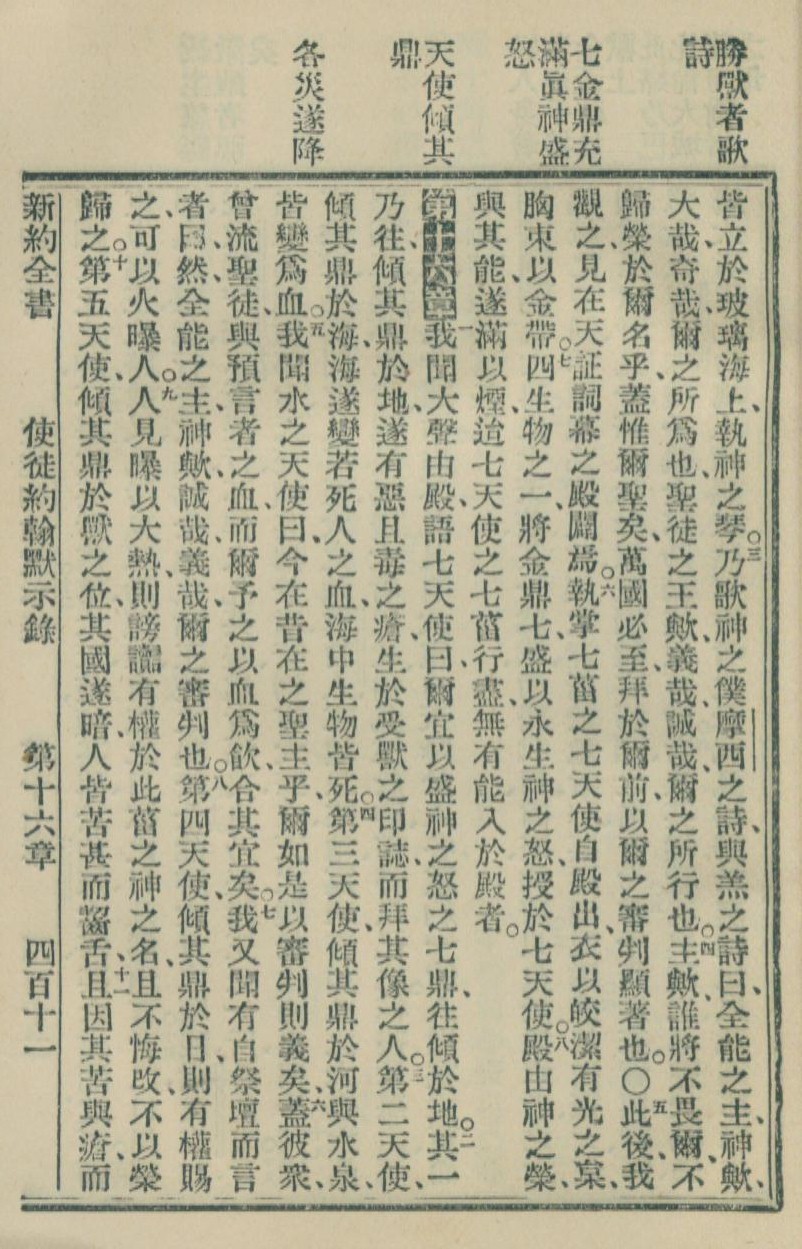 勝獸者歌
詩
七金鼎充
滿眞神盛
怒
天使傾其
鼎
各災遂降
皆立於玻璃海上、執神之琴。三乃歌神之僕摩西之詩、與羔之詩曰、全能之主、神歟、
大哉、奇哉、爾之所爲也、聖徒之王歟、義哉、誠哉、爾之所行也。四主歟、誰將不畏爾、不
歸榮於爾名乎、蓋惟爾聖矣、萬國必至、拜於爾前、以爾之審判顯著也。〇五此後、我
觀之、見在天証詞幕之殿闢焉。六執掌七菑之七天使自殿出、衣以皎潔有光之枲、
胸束以金帶。七四生物之一、將金鼎七、盛以永生神之怒、授於七天使。八殿由神之榮、
與其能、遂滿以煙、迨七天使之七菑行盡、無有能入於殿者。
第十六章一我聞大聲由殿、語七天使曰、爾宜以盛神之怒之七鼎、往傾於地。二其一
乃往、傾其鼎於地、遂有惡且毒之瘡、生於受獸之印誌、而拜其像之人。三第二天使、
傾其鼎於海、海遂變若死人之血、海中生物皆死。四第三天使、傾其鼎於河與水泉、
皆變爲血。五我聞水之天使曰、今在昔在之聖主乎、爾如是以審判則義矣、六蓋彼衆、
曾流聖徒、與預言者之血、而爾予之以血爲飲、合其宜矣。七我又聞有自祭壇而言
者曰、然、全能之主、神歟、誠哉、義哉、爾之審判也。八第四天使、傾其鼎於日、則有權賜
之、可以火曝人。九人見曝以大熱、則謗讟有權於此菑之神之名、且不悔改、不以榮
歸之。十第五天使、傾其鼎於獸之位、其國遂暗、人皆苦甚而齧舌、十一且因其苦與瘡、而
新約全書 使徒約翰默示錄 第十六章 四百十一